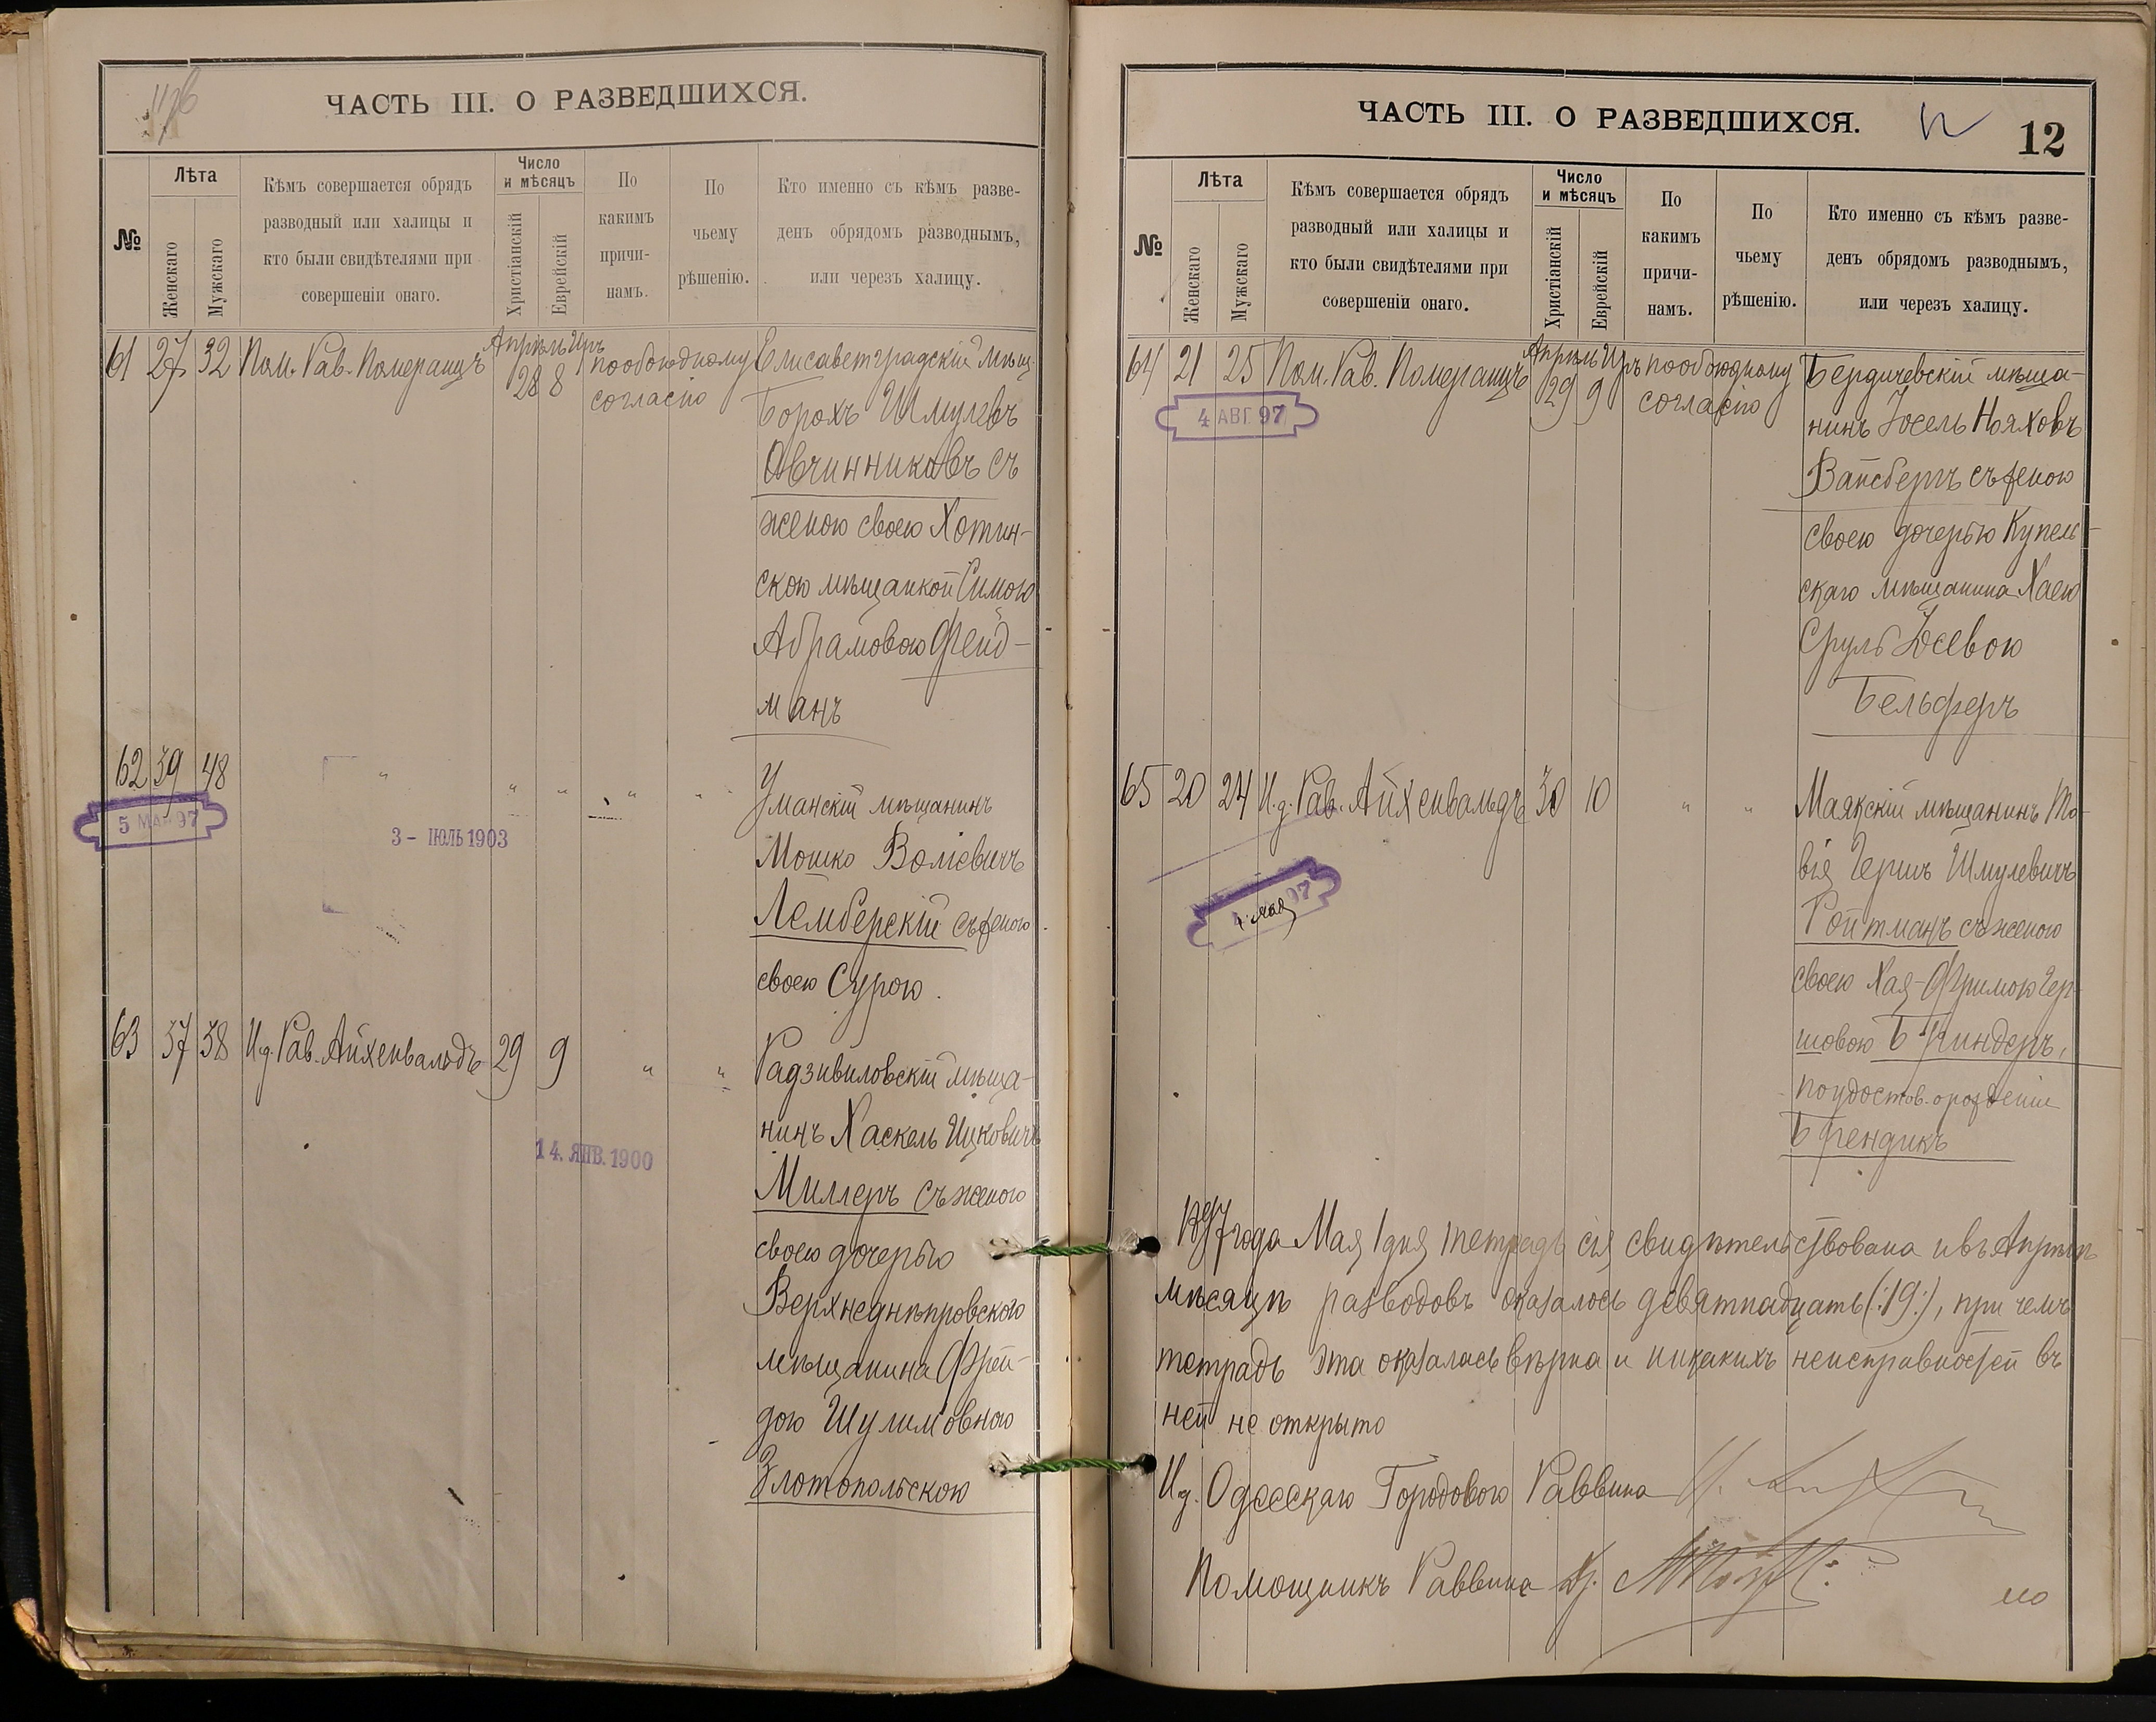 ЧАСТЬ III. О РАЗВЕДШИХСЯ.
№
Лѣта
Женскаго
Мужскаго
Кѣмъ совершается обрядъ
разводный или халицы и
кто были свидѣтелями при
совершеніи онаго.
Число
и мѣсяцъ
Христіанскій
Еврейскій
По
какимъ
причи-
намъ.
По
чьему
рѣшенію.
Кто именно съ кѣмъ разве-
денъ обрядомъ разводнымъ,
или черезъ халицу.
61 27 32 Пом. Рав. Померанцъ Апрѣль Иръ 28 8 по обоюдному
согласію
Елисаветградскій мѣщ.
Борохъ Шмулевъ
Овчинниковъ съ
женою своею Хотин-
скою мѣщанкой Симою
Абрамовою Фельд-
манъ
62 39 48 " " " " "
5 МАЯ 97
3 - ІЮЛЬ 1903
Уманскій мѣщанинъ
Мошко Волісвичъ
Лембергскій съ женою
своею Сурою.
63 37 38 И.д. Рав. Айхенвальдъ 29 9 " "
14. ЯНВ. 1900
Радзивиловскій мѣща-
нинъ Хаскель Ицковичъ
Миллеръ съ женою
своею дочерью
Верхнеднѣпровского
мѣщанина Фрей-
дою Шулимовною
Злотопольскою
ЧАСТЬ III. О РАЗВЕДШИХСЯ.
12
№
Лѣта
Женскаго
Мужскаго
Кѣмъ совершается обрядъ
разводный или халицы и
кто были свидѣтелями при
совершеніи онаго.
Число
и мѣсяцъ
Христіанскій
Еврейскій
По
какимъ
причи-
намъ.
По
чьему
рѣшенію.
Кто именно съ кѣмъ разве-
денъ обрядомъ разводнымъ,
или черезъ халицу.
64 21 25 Пом. Рав. Померанцъ Апрѣль Иръ 29 9 по обоюдному
согласію
4 АВГ. 97
Бердичевскій мѣща-
нинъ Іосель Нояховъ
Вайсбергъ съ женою
своею дочерью Купель-
скаго мѣщанина Хаею
Сруль Іосевою
Бельферъ
65 20 24 И.д. Рав. Айхенвальдъ 30 10 " "
4 мая 97
Маякскій мѣщанинъ То-
вія Гершъ Шмулевичъ
Ройтманъ съ женою
своею Хая-Фримою Гер-
шовою Бриндеръ,
по удостов. о рожденіи
Брендикъ
1897 года Мая 1 дня тетрадь сія свидѣтельствована и въ Апрѣлѣ
мѣсяцѣ разводовъ оказалось девятнадцать (:19:), при чемъ
тетрадь эта оказалась вѣрна и никакихъ неисправностей въ
ней не открыто
И.д. Одесскаго Городового Раввина
Помощникъ Раввина